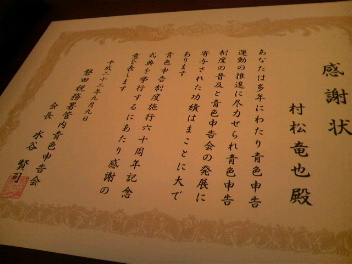 感謝状
村松竜也殿
あなたは多年にわたり青色申告
運動の推進に尽力せられ青色申告
制度の普及と青色申告会の発展に
寄与された功績はまことに大で
あります
青色申告制度施行六十周年記念
式典を挙行するにあたり感謝の
意を表します
平成二十三年九月九日
磐田税務署管内青色申告会
会長 水谷 賢司